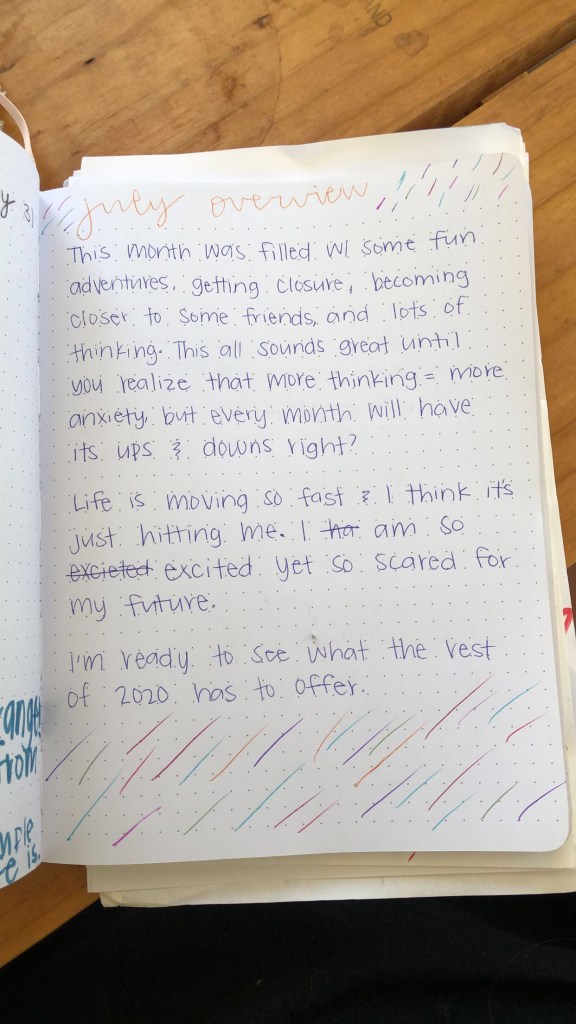 july overview
This month was filled w/ some fun
adventures, getting closure, becoming
closer to some friends, and lots of
thinking. This all sounds great until
you realize that more thinking = more
anxiety, but every month will have
its ups & downs right?
Life is moving so fast & I think it's
just hitting me. I ha am so
excieted excited yet so scared for
my future.
I'm ready to see what the rest
of 2020 has to offer.